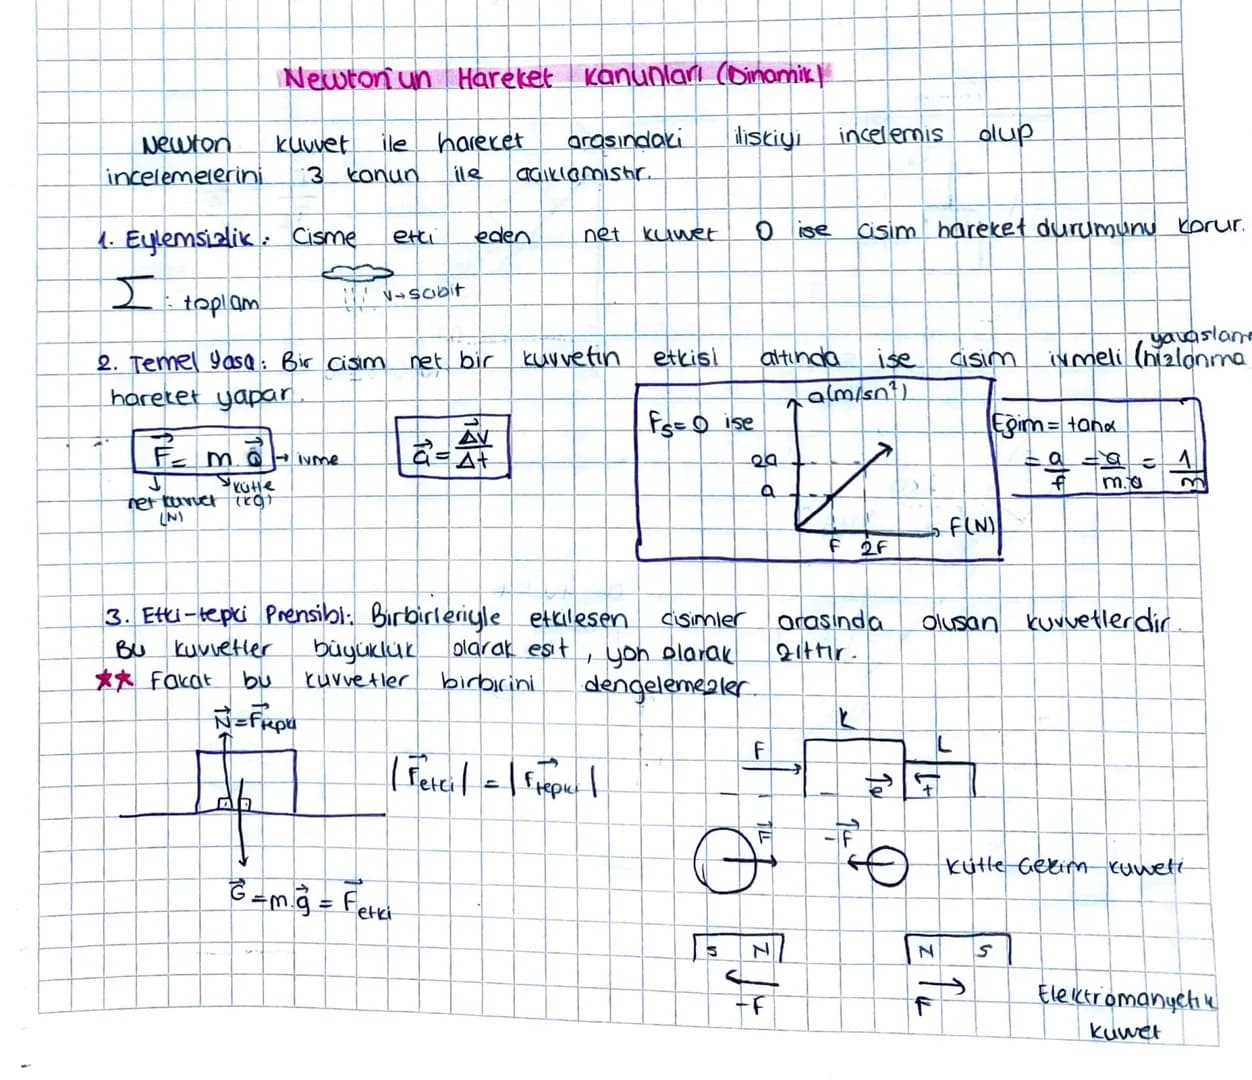 Newton'un Hareket Kanunları (Dinamik)
Newton kuvvet ile hareket arasındaki ilişkiyi incelemis olup
incelemelerini 3 kanun ile açıklamıştır.
1. Eylemsizlik: Cisme etki eden net kuvvet 0 ise cisim hareket durumunu korur.
Σ: toplam
V→sabit
2. Temel Yasa: Bir cisim net bir kuvvetin etkisi altında ise cisim ivmeli (hızlanma
yavaslama
hareket yapar.
F⃗ = m.a⃗ → ivme
kütle
(kg)
net kuvvet
(N)
a⃗ = ΔV⃗/Δt
Fs=0 ise
a(m/sn²)
2a
a
F 2F
F(N)
Eğim = tanα
= a/f = a/m.a = 1/m
3. Etki-tepki Prensibi: Birbirleriyle etkilesen cisimler arasında olusan kuvvetlerdir.
Bu kuvvetler büyüklük olarak esit, yön olarak zıttır.
** Fakat bu kuvvetler birbirini dengelemezler.
N⃗=F⃗tepki
|F⃗etki| = |F⃗tepki|
G⃗=m.g⃗ = F⃗etki
F
K
L
e⃗
t⃗
F⃗
-F⃗
Kütle Çekim kuvveti
S N
-F
N S
F
Elektromanyetik
kuvvet